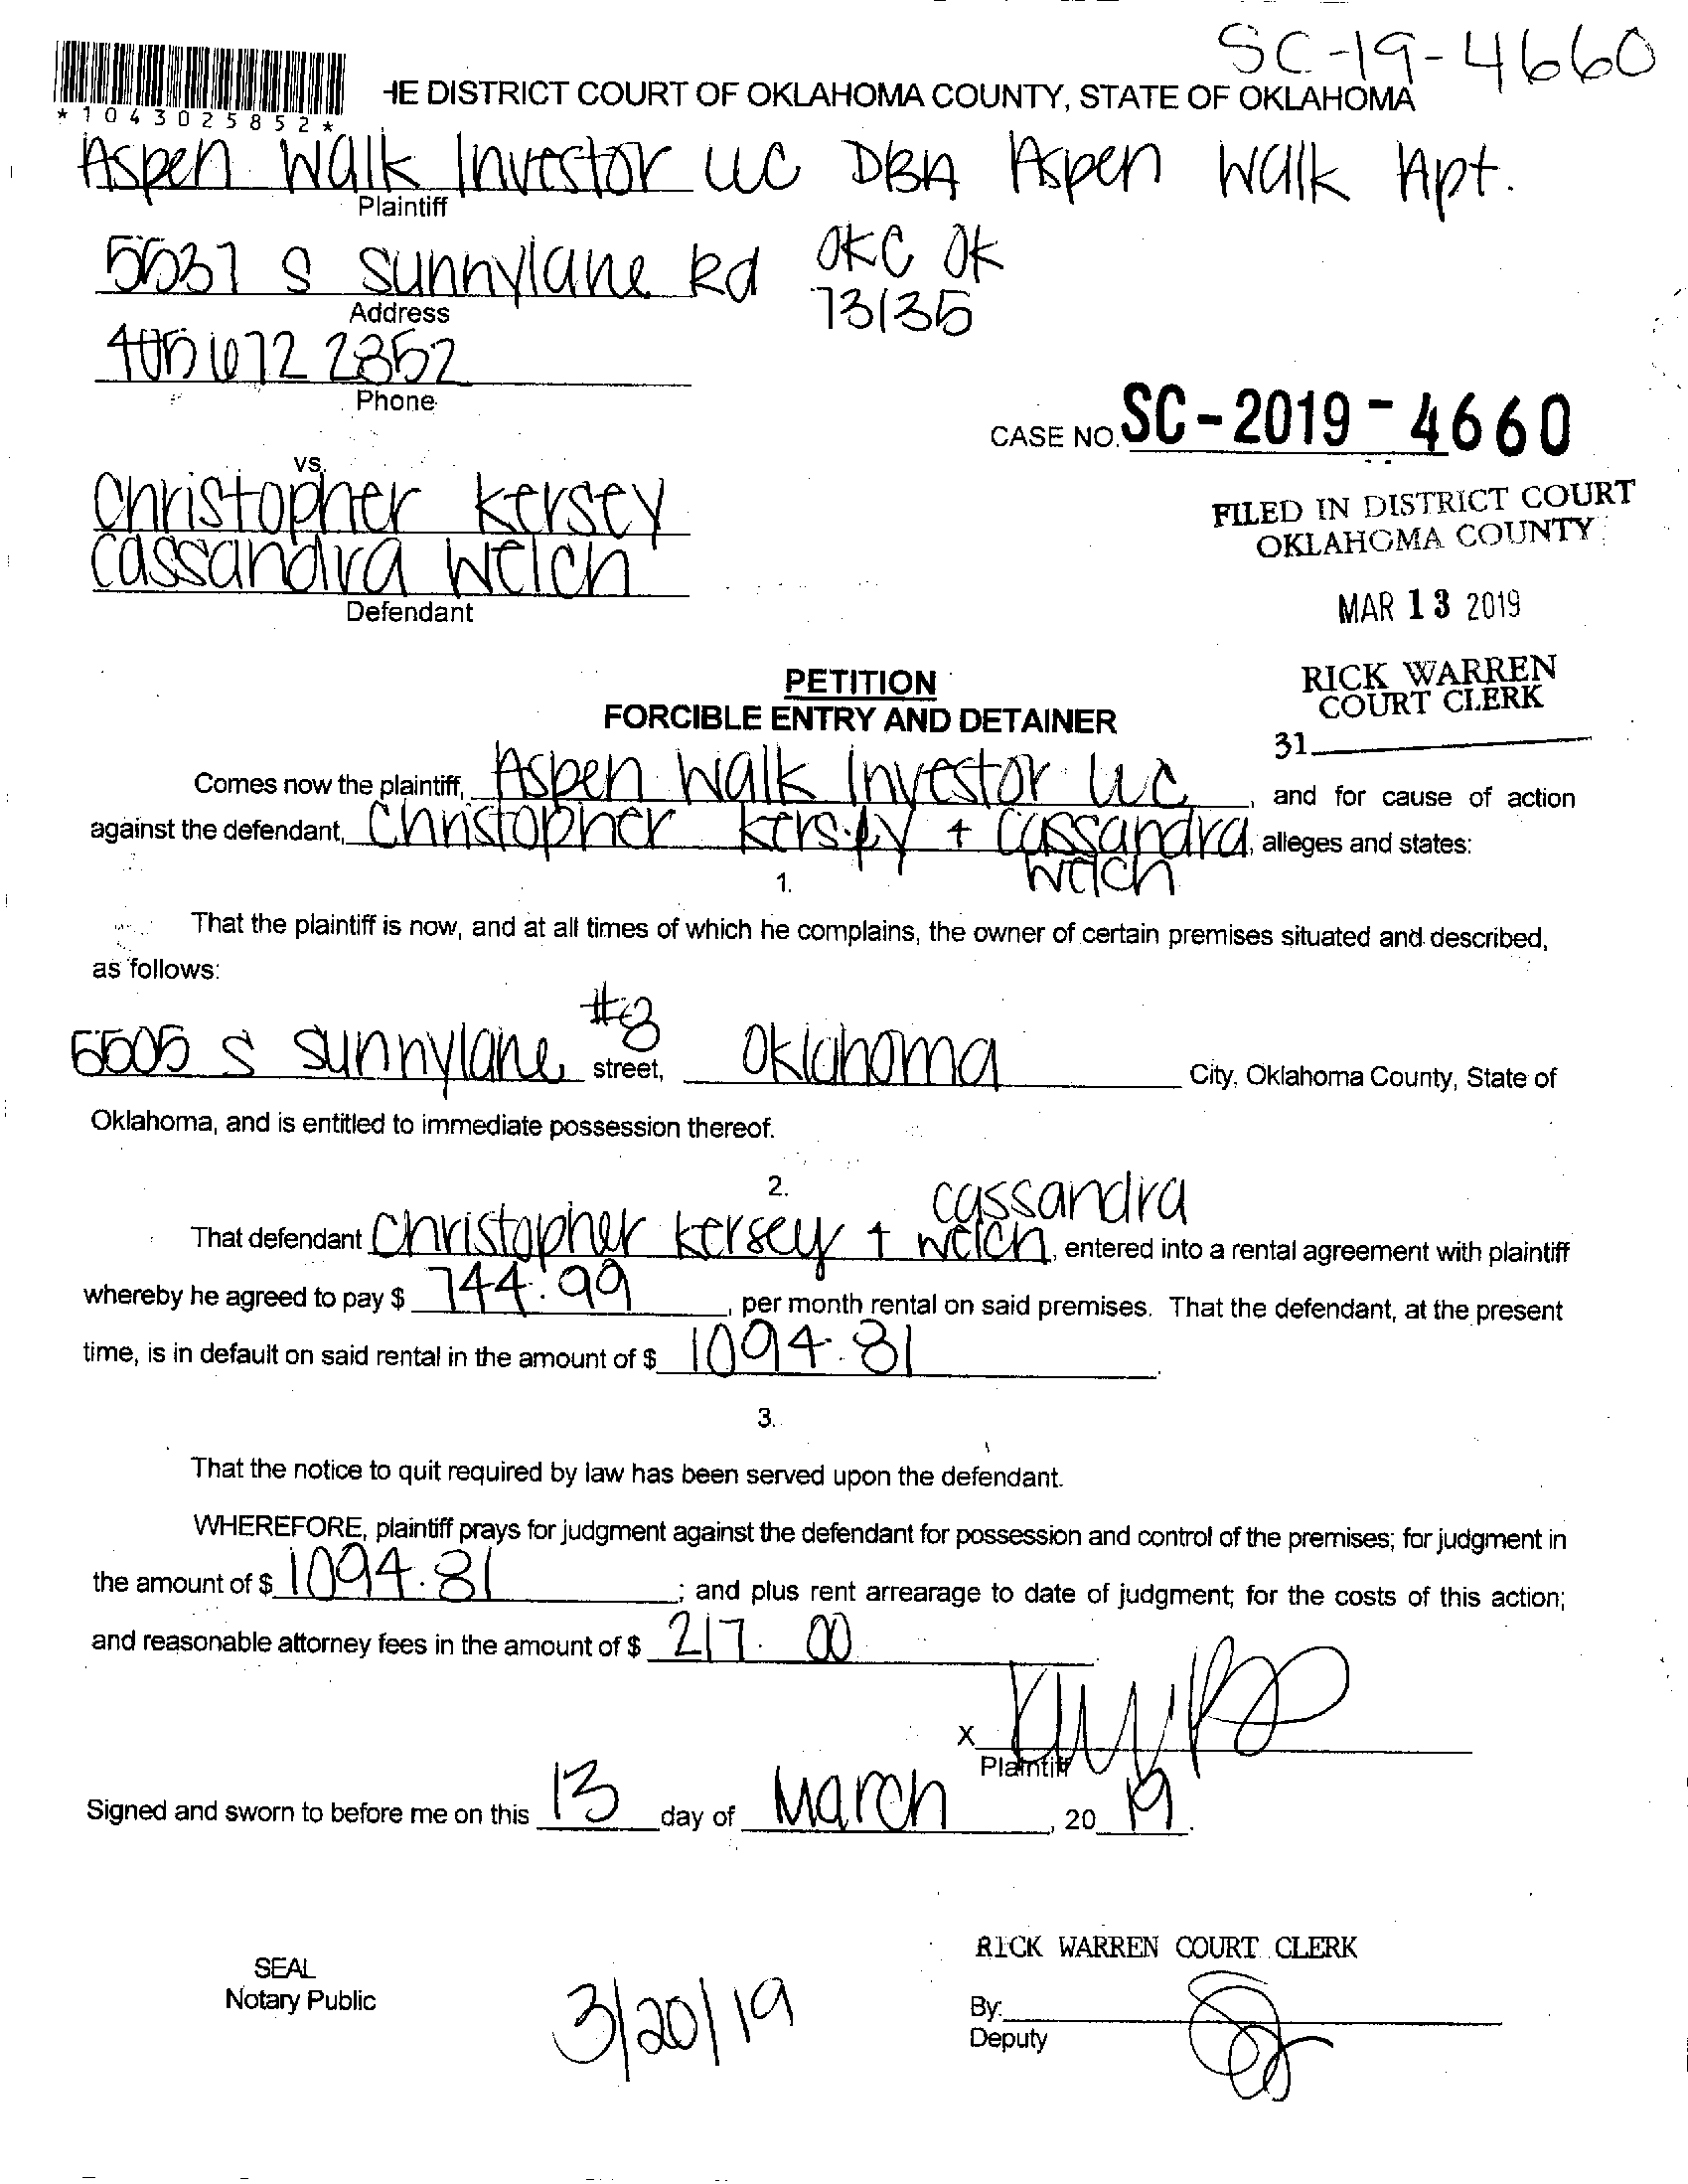 SC-19-4660
HE DISTRICT COURT OF OKLAHOMA COUNTY, STATE OF OKLAHOMA
*1043025852*
Aspen Walk Investor LLC DBA Aspen Walk Apt.
Plaintiff
5537 S Sunnylane Rd OKC OK
73135
Address
405 672 2352
Phone
CASE NO. SC-2019-4660
vs.
Christopher Kersey
Cassandra Welch
Defendant
FILED IN DISTRICT COURT
OKLAHOMA COUNTY
MAR 13 2019
RICK WARREN
COURT CLERK
31
PETITION
FORCIBLE ENTRY AND DETAINER
Comes now the plaintiff, Aspen Walk Investor LLC, and for cause of action
against the defendant, Christopher Kersey + Cassandra, alleges and states:
Welch
1.
That the plaintiff is now, and at all times of which he complains, the owner of certain premises situated and described,
as follows:
5505 S Sunnylane #8 street, Oklahoma City, Oklahoma County, State of
Oklahoma, and is entitled to immediate possession thereof.
2.
Cassandra
That defendant Christopher Kersey + Welch, entered into a rental agreement with plaintiff
whereby he agreed to pay $ 744.99, per month rental on said premises. That the defendant, at the present
time, is in default on said rental in the amount of $ 1094.81.
3.
That the notice to quit required by law has been served upon the defendant.
WHEREFORE, plaintiff prays for judgment against the defendant for possession and control of the premises; for judgment in
the amount of $ 1094.81; and plus rent arrearage to date of judgment; for the costs of this action;
and reasonable attorney fees in the amount of $ 217.00.
X
Plaintiff
Signed and sworn to before me on this 13 day of March, 2019.
RICK WARREN COURT CLERK
SEAL
Notary Public
3/20/19
By:
Deputy